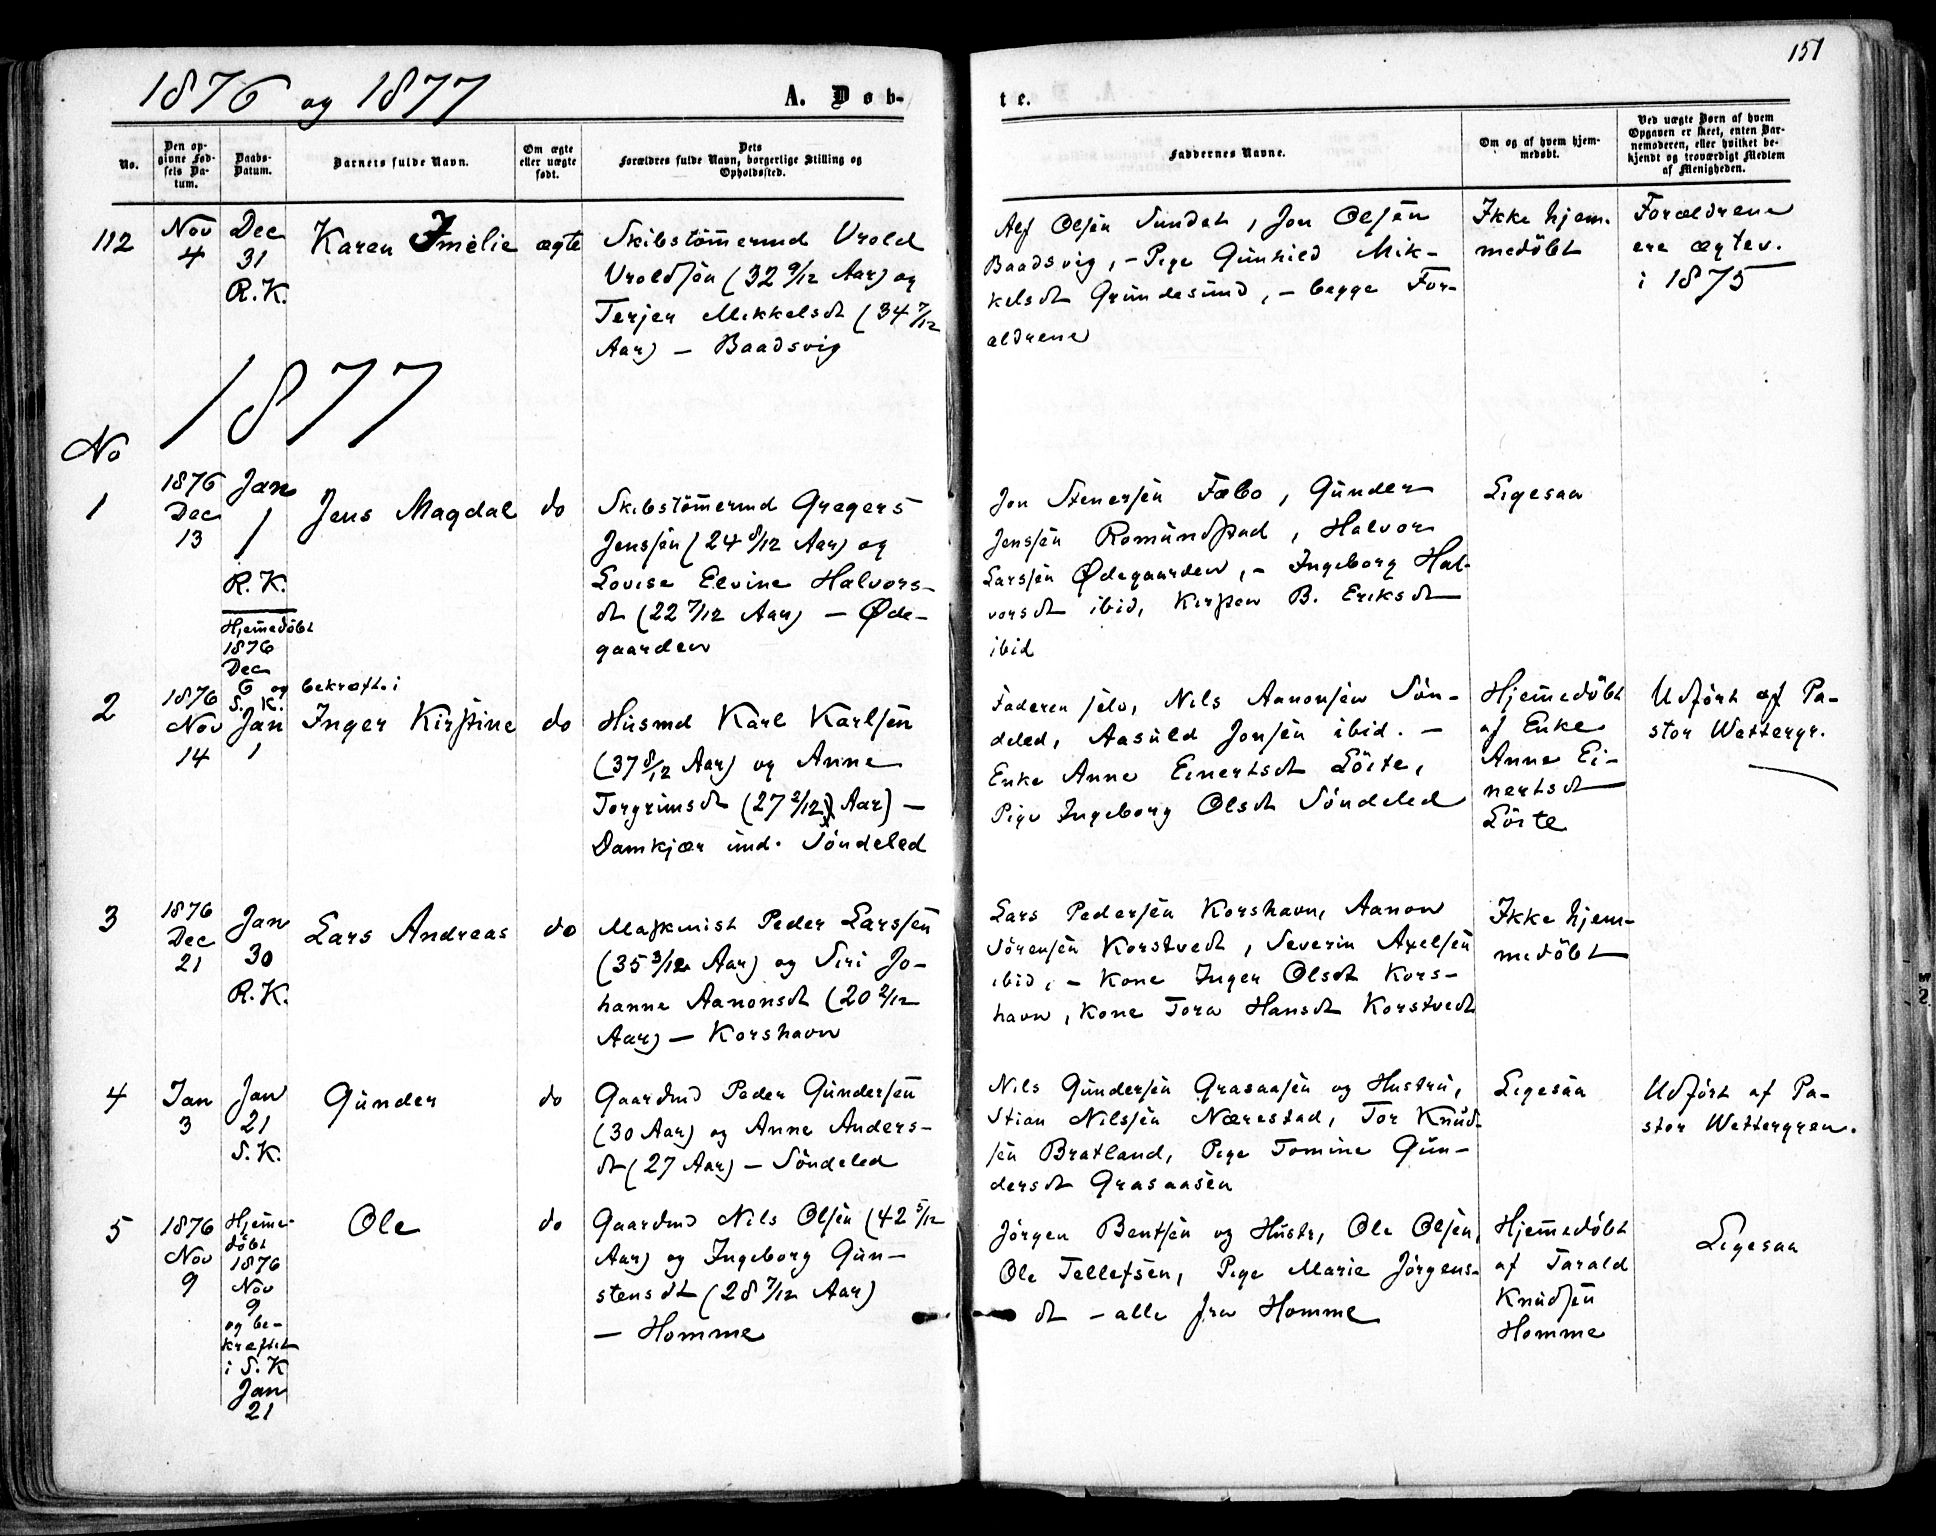 151
1876 og 1877
A. Døb-
te.
No.
Den op-
givne Fød-
sels Da-
tum.
Daabs-
Datum.
Barnets fulde Navn.
Om ægte
eller uægte
født.
Dets
Forældres fulde Navn, borgerlige Stilling og
Opholdssted.
Faddernes Navne.
Om og af hvem hjem-
medøbt.
Ved uægte Børn af hvem
Opgaven er skeet, enten Bar-
nemoderen, eller hvilket be-
kjendt og troværdigt Medlem
af Menigheden.
112
Nov
4
Dec
31
R.K.
Karen Imelie
ægte
Skibstömermd Vrold
Vroldsen (32 9/12 Aar) og
Terjer Mikkelsdt (34 7/12
Aar) — Baadsvig
Alf Olsen Sundet, Jon Olsen
Baadsvig, - Pige Gunhild Mik-
kelsdt Grundesund, - begge For-
ældrene
Ikke hjem-
medöbt
Forældrene
ere ægtev.
i 1875
1877
No
1
1876
Dec
13
Jan
1
R.K.
Jens Magdal
do
Skibstömermd Gregers
Jenssen (24 8/12 Aar) og
Lovise Elvine Halvors-
dt (22 7/12 Aar) — Øde-
gaarden
Jon Stenersen Fæbo, Gunder
Jenssen Romundstad, Halvor
Larssen Ødegaarden, - Ingeborg Hal-
vorsdt ibid, Kirsten B. Eriksdt
ibid
Ligesaa
2
1876
Nov
14
Hjemedöbt
1876
Dec
6 og bekræft. i
S.K.
Jan
1
Inger Kirstine
do
Husmd Karl Karlsen
(37 8/12 Aar) og Anne
Torgrimsdt (27 2/12 Aar) —
Damkjær und. Söndeled
Faderen selv, Nils Aanonsen Sön-
deled, Aasuld Jonsen ibid. —
Enke Anne Einertsdt Löite,
Pige Ingeborg Olsdt Söndeled
Hjemedöbt
af Enke
Anne Ei-
nertsdt
Löite
Udfört af Pa-
stor Wettergr.
3
1876
Dec
21
Jan
30
R.K.
Lars Andreas
do
Maskinist Peder Larssen
(35 3/12 Aar) og Siri Jo-
hanne Aanonsdt (20 2/12
Aar) — Korshavn
Lars Pedersen Korshavn, Aanon
Sörensen Korstvedt, Severin Axelsen
ibid, - Kone Inger Olsdt Kors-
havn, Kone Tora Hansdt Korstvedt
Ikke hjem-
medöbt
4
Jan
3
Jan
21
S.K.
Gunder
do
Gaardmd Peder Gundersen
(30 Aar) og Anne Anders-
dt (27 Aar) — Söndeled
Nils Gundersen Grasaasen og Hustru,
Stian Nilssen Nærestad, Tor Knud-
sen Bratland, Pige Tomine Gun-
dersdt Grasaasen
Ligesaa
Udfört af Pa-
stor Wettergren.
5
1876
Nov
9
Hjeme-
döbt
1876
Nov
9
og be-
kræftet
i S.K
Jan
21
Ole
do
Gaardmd Nils Olsen (42 5/12
Aar) og Ingeborg Gun-
stensdt (28 7/12 Aar)
— Homme
Jörgen Bentsen og Hustr, Ole Olsen,
Ole Tellefsen, Pige Marie Jörgens-
dt - alle fra Homme
Hjemedöbt
af Tarald
Knudsen
Homme
Ligesaa